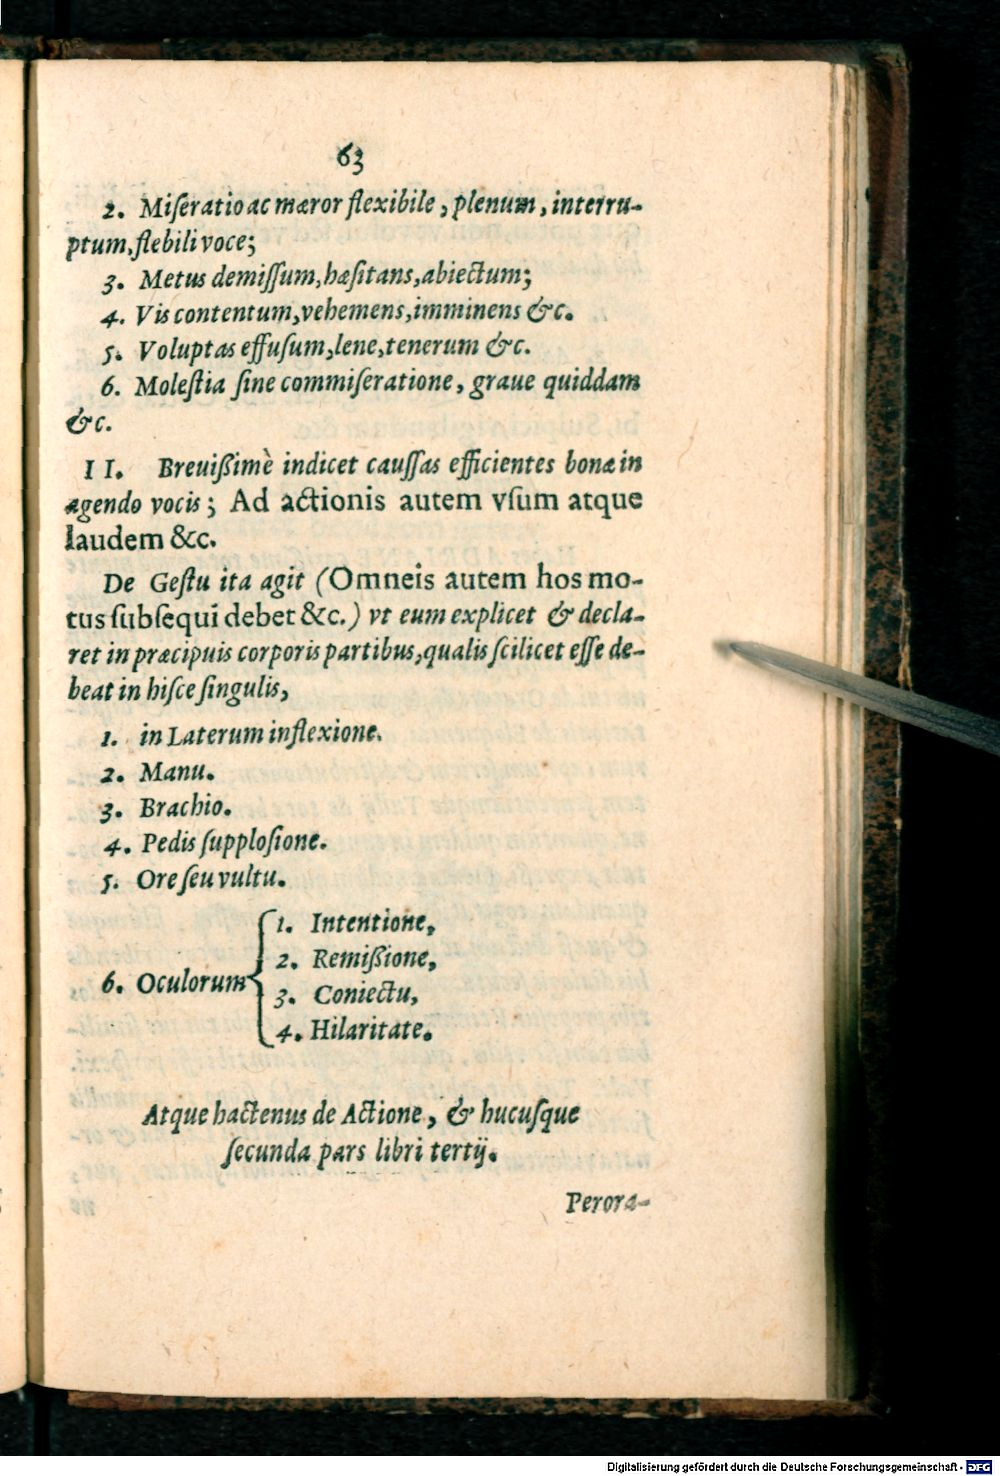 63
2. Miſeratio ac mæror flexibile, plenum, interru-
ptum, flebili voce;
3. Metus demiſſum, hæſitans, abiectum;
4. Vis contentum, vehemens, imminens &c.
5. Voluptas effuſum, lene, tenerum &c.
6. Moleſtia ſine commiſeratione, graue quiddam
&c.
II. Breuißimè indicet cauſſas efficientes bonæ in
agendo vocis; Ad actionis autem vſum atque
laudem &c.
De Geſtu ita agit (Omneis autem hos mo-
tus ſubſequi debet &c.) vt eum explicet & decla-
ret in præcipuis corporis partibus, qualis ſcilicet eſſe de-
beat in hiſce ſingulis,
1. in Laterum inflexione.
2. Manu.
3. Brachio.
4. Pedis ſupploſione.
5. Ore ſeu vultu.
6. Oculorum
1. Intentione,
2. Remißione,
3. Coniectu,
4. Hilaritate.
Atque hactenus de Actione, & hucuſque
ſecunda pars libri tertij.
Perora-
Digitalisierung gefördert durch die Deutsche Forschungsgemeinschaft - DFG